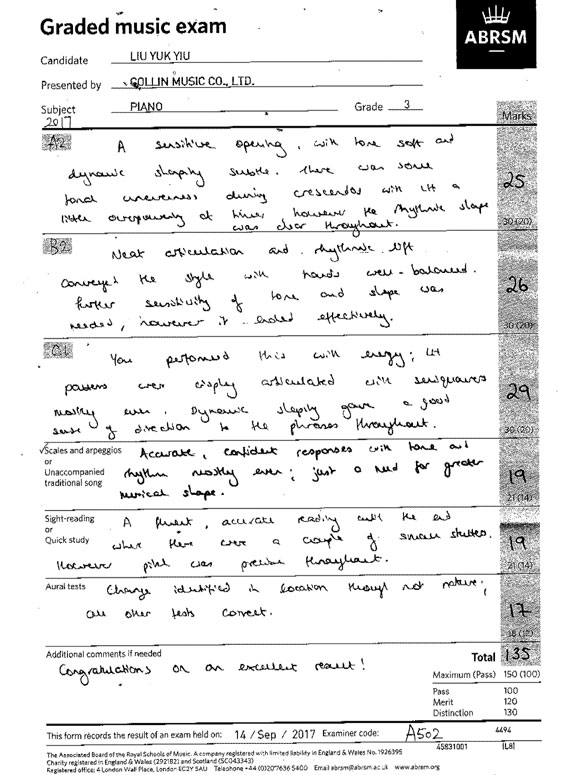 Graded music exam
ABRSM
Candidate LIU YUK YIU
Presented by GOLLIN MUSIC CO., LTD.
Subject PIANO Grade 3
2017
Marks
A2 A sensitive opening, with tone soft and
dynamic shaping subtle. There was some
tonal unevenness during crescendos with LH a
little overpowering at times however the rhythmic shape
was clear throughout.
25
30 (20)
B2 Neat articulation and rhythmic lift
conveyed the style with hands well-balanced.
Further sensitivity of tone and shape was
needed, however it ended effectively.
26
30 (20)
C1 You performed this with energy; LH
passages were crisply articulated with semiquavers
mostly even. Dynamic shaping gave a good
sense of direction to the phrases throughout.
29
30 (20)
Scales and arpeggios
or
Unaccompanied
traditional song
Accurate, confident responses with tone and
rhythm mostly even; just a need for greater
musical shape.
19
21 (14)
Sight-reading
or
Quick study
A fluent, accurate reading until the end
when there were a couple of small stutters.
However pitch was precise throughout.
19
21 (14)
Aural tests Change identified in location though not nature;
all other tests correct.
17
18 (12)
Additional comments if needed
Congratulations on an excellent result!
Total 135
Maximum (Pass) 150 (100)
Pass 100
Merit 120
Distinction 130
This form records the result of an exam held on: 14 / Sep / 2017 Examiner code: A502 4494
45831001 [L8]
The Associated Board of the Royal Schools of Music. A company registered with limited liability in England & Wales No. 1926395
Charity registered in England & Wales (292182) and Scotland (SC043343)
Registered office: 4 London Wall Place, London EC2Y 5AU Telephone +44 (0)20 7636 5400 Email abrsm@abrsm.ac.uk www.abrsm.org